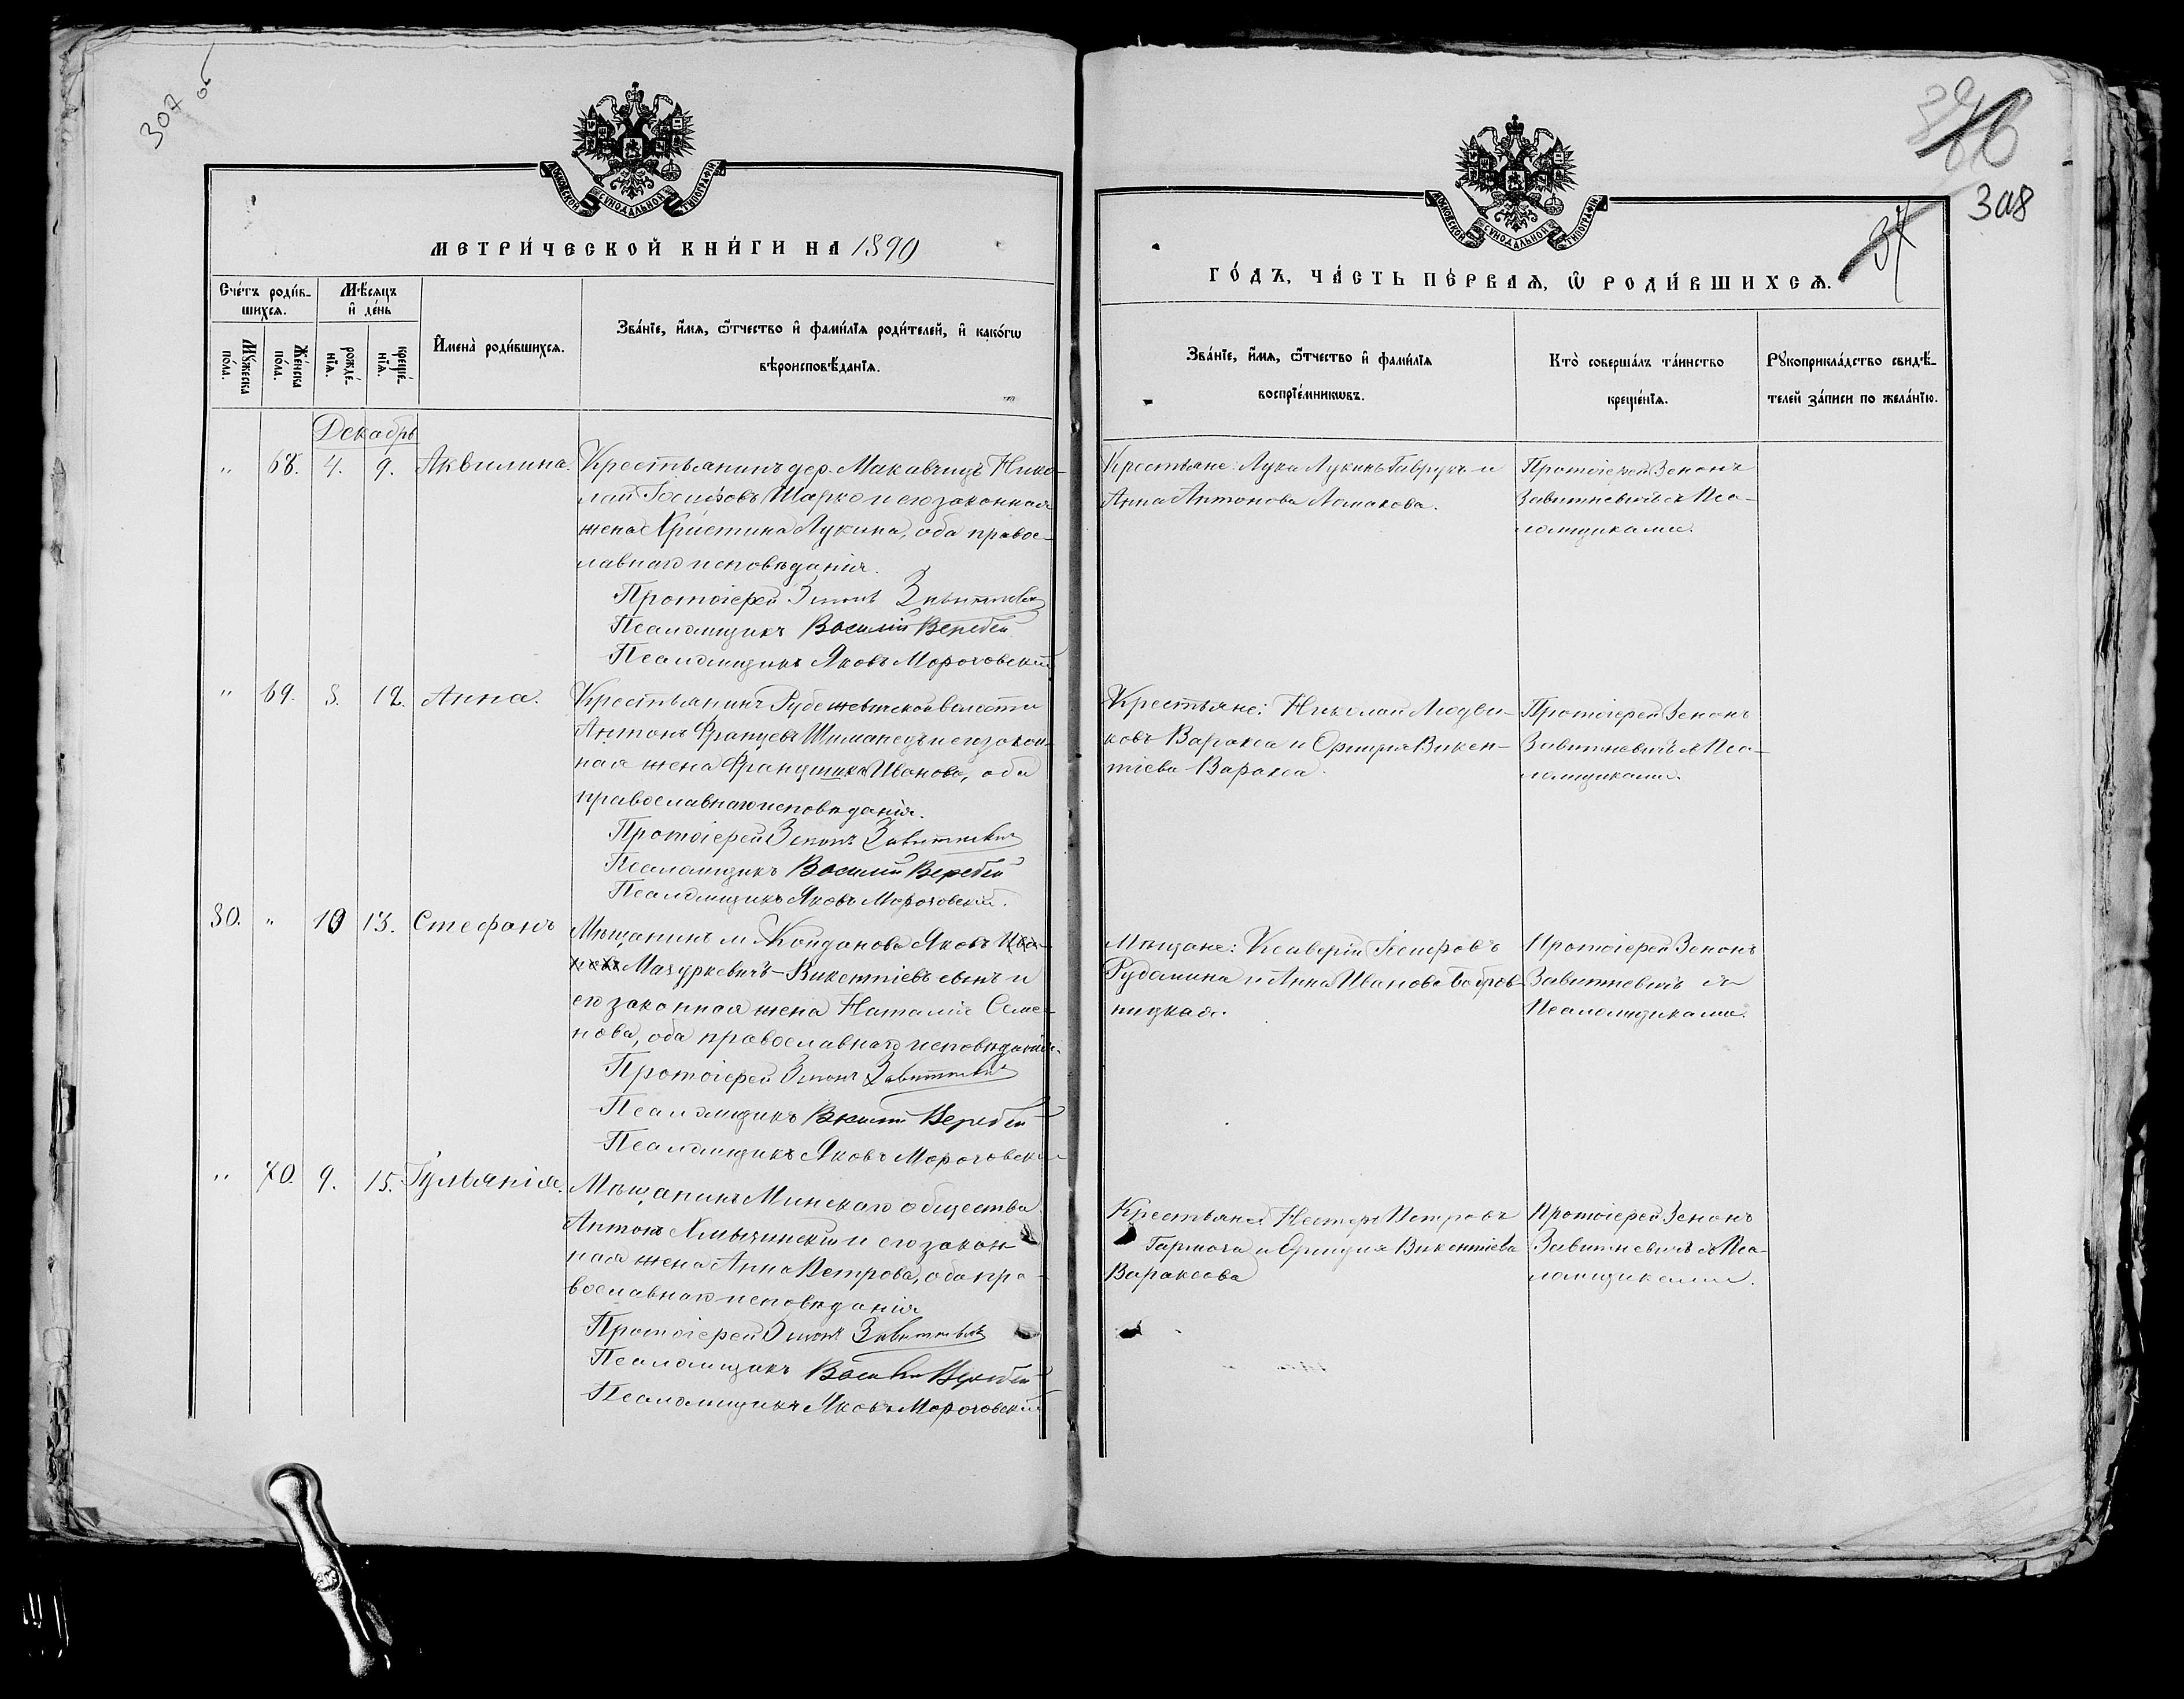 307 об
МОСКОВСКОЙ СѴНОДАЛЬНОЙ ТИПОГРАФІИ
МЕТРИ́ЧЕСКОЙ КНИ́ГИ НА 1890
Сче́тъ роди́в-
шихсѧ.
Мꙋ́жеска
по́ла.
Же́нска
по́ла.
Мѣ́сѧцъ
и҆ де́нь
рожде́-
нїѧ.
креще́-
нїѧ.
И҆мена̀ роди́вшихсѧ.
Зва́нїе, и҆́мѧ, ѻ҆́тчество и҆ фами́лїѧ роди́телей, и҆ како́гѡ
вѣроисповѣ́данїѧ.
Декабрь
" 68. 4. 9. Аквилина.
Крестьянинъ дер. Макавчицъ Нико-
лай Іосифовъ Шарко и его законная
жена Христина Лукина, оба право-
славнаго исповѣданія.
Протоіерей Зенонъ Завитневичъ
Псаломщикъ Василій Веребей
Псаломщикъ Яковъ Морочовскій
" 69. 8. 12. Анна.
Крестьянинъ Рубежевичской волости
Антонъ Францевъ Шиманецъ и его закон-
ная жена Францишка Иванова, оба
православнаго исповѣданія.
Протоіерей Зенонъ Завитневичъ
Псаломщикъ Василій Веребей
Псаломщикъ Яковъ Морочовскій.
80. " 10 13. Стефанъ
Мѣщанинъ м. Койданова Яковъ Ива-
новъ Мазуркевичъ - Викентіевъ сынъ и
его законная жена Наталія Семе-
нова, оба православнаго исповѣданія.
Протоіерей Зенонъ Завитневичъ
Псаломщикъ Василій Веребей
Псаломщикъ Яковъ Морочовскій
" 70. 9. 15. Іульянія.
Мѣщанинъ Минскаго общества
Антонъ Хмычинскій и его закон
ная жена Анна Петрова, оба пра-
вославнаго исповѣданія
Протоіерей Зенонъ Завитневичъ
Псаломщикъ Василій Веребей
Псаломщикъ Яковъ Морочовскій
308
37
МОСКОВСКОЙ СѴНОДАЛЬНОЙ ТИПОГРАФІИ
ГО́ДЪ, ЧА́СТЬ ПЕ́РВАѦ, Ѡ҆ РОДИ́ВШИХСѦ.
Зва́нїе, и҆́мѧ, ѻ҆́тчество и҆ фами́лїѧ
воспрїе́мникѡвъ.
Кто̀ соверша́лъ та́инство
креще́нїѧ.
Рꙋкоприкла́дство свидѣ́-
телей за́писи по жела́нїю.
Крестьяне: Лука Лукинъ Гаврукъ и
Анна Антонова Ломакова.
Протоіерей Зенонъ
Завитневичъ съ Пса-
ломщиками.
Крестьяне: Николай Людви-
ковъ Варакса и Ориція Викен-
тіева Варакса.
Протоіерей Зенонъ
Завитневичъ съ Пса-
ломщиками.
Мѣщане: Ксаверій Петровъ
Рудамина и Анна Иванова Бобров-
ницкая.
Протоіерей Зенонъ
Завитневичъ съ
Псаломщиками.
Крестьяне: Нестеръ Петровъ
Гармоза и Орицдія Викентіева
Вараксова
Протоіерей Зенонъ
Завитневичъ съ Пса-
ломщиками.